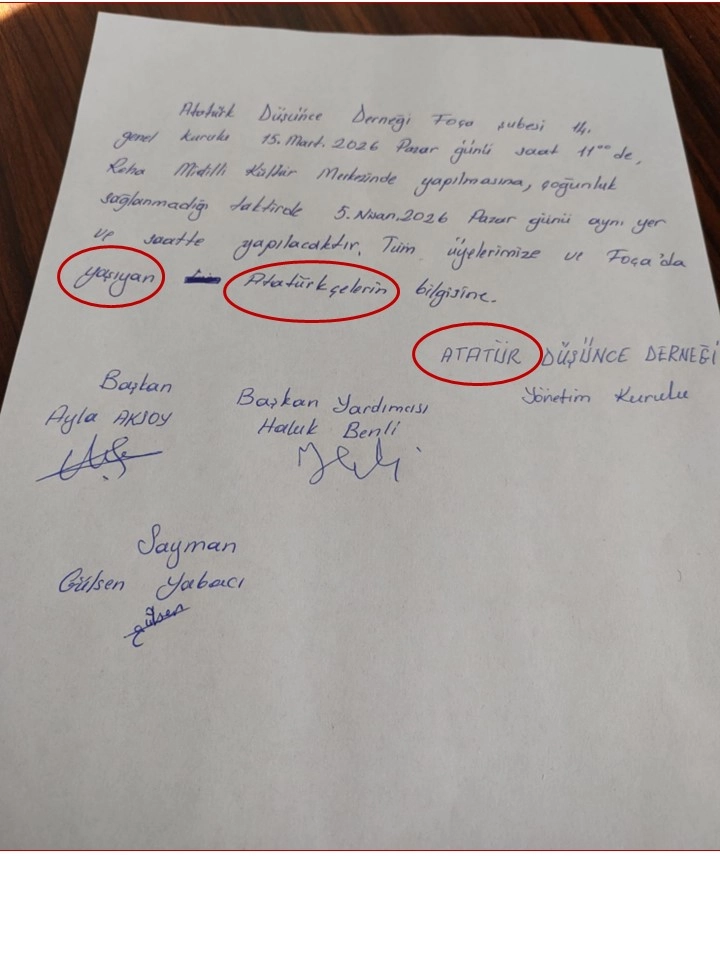 Atatürk Düşünce Derneği Foça şubesi 14.
genel kurulu 15.Mart.2026 Pazar günü saat 11⁰⁰de,
Reha Midilli Kültür Merkezinde yapılmasına, çoğunluk
sağlanmadığı taktirde 5.Nisan.2026 Pazar günü aynı yer
ve saatte yapılacaktır. Tüm üyelerimize ve Foça'da
yaşıyan Atatürkçelerin bilgisine.
ATATÜR DÜŞÜNCE DERNEĞİ
Yönetim Kurulu
Başkan
Ayla AKSOY
Başkan Yardımcısı
Haluk Benli
Sayman
Gülsen Yabacı
Gülsen